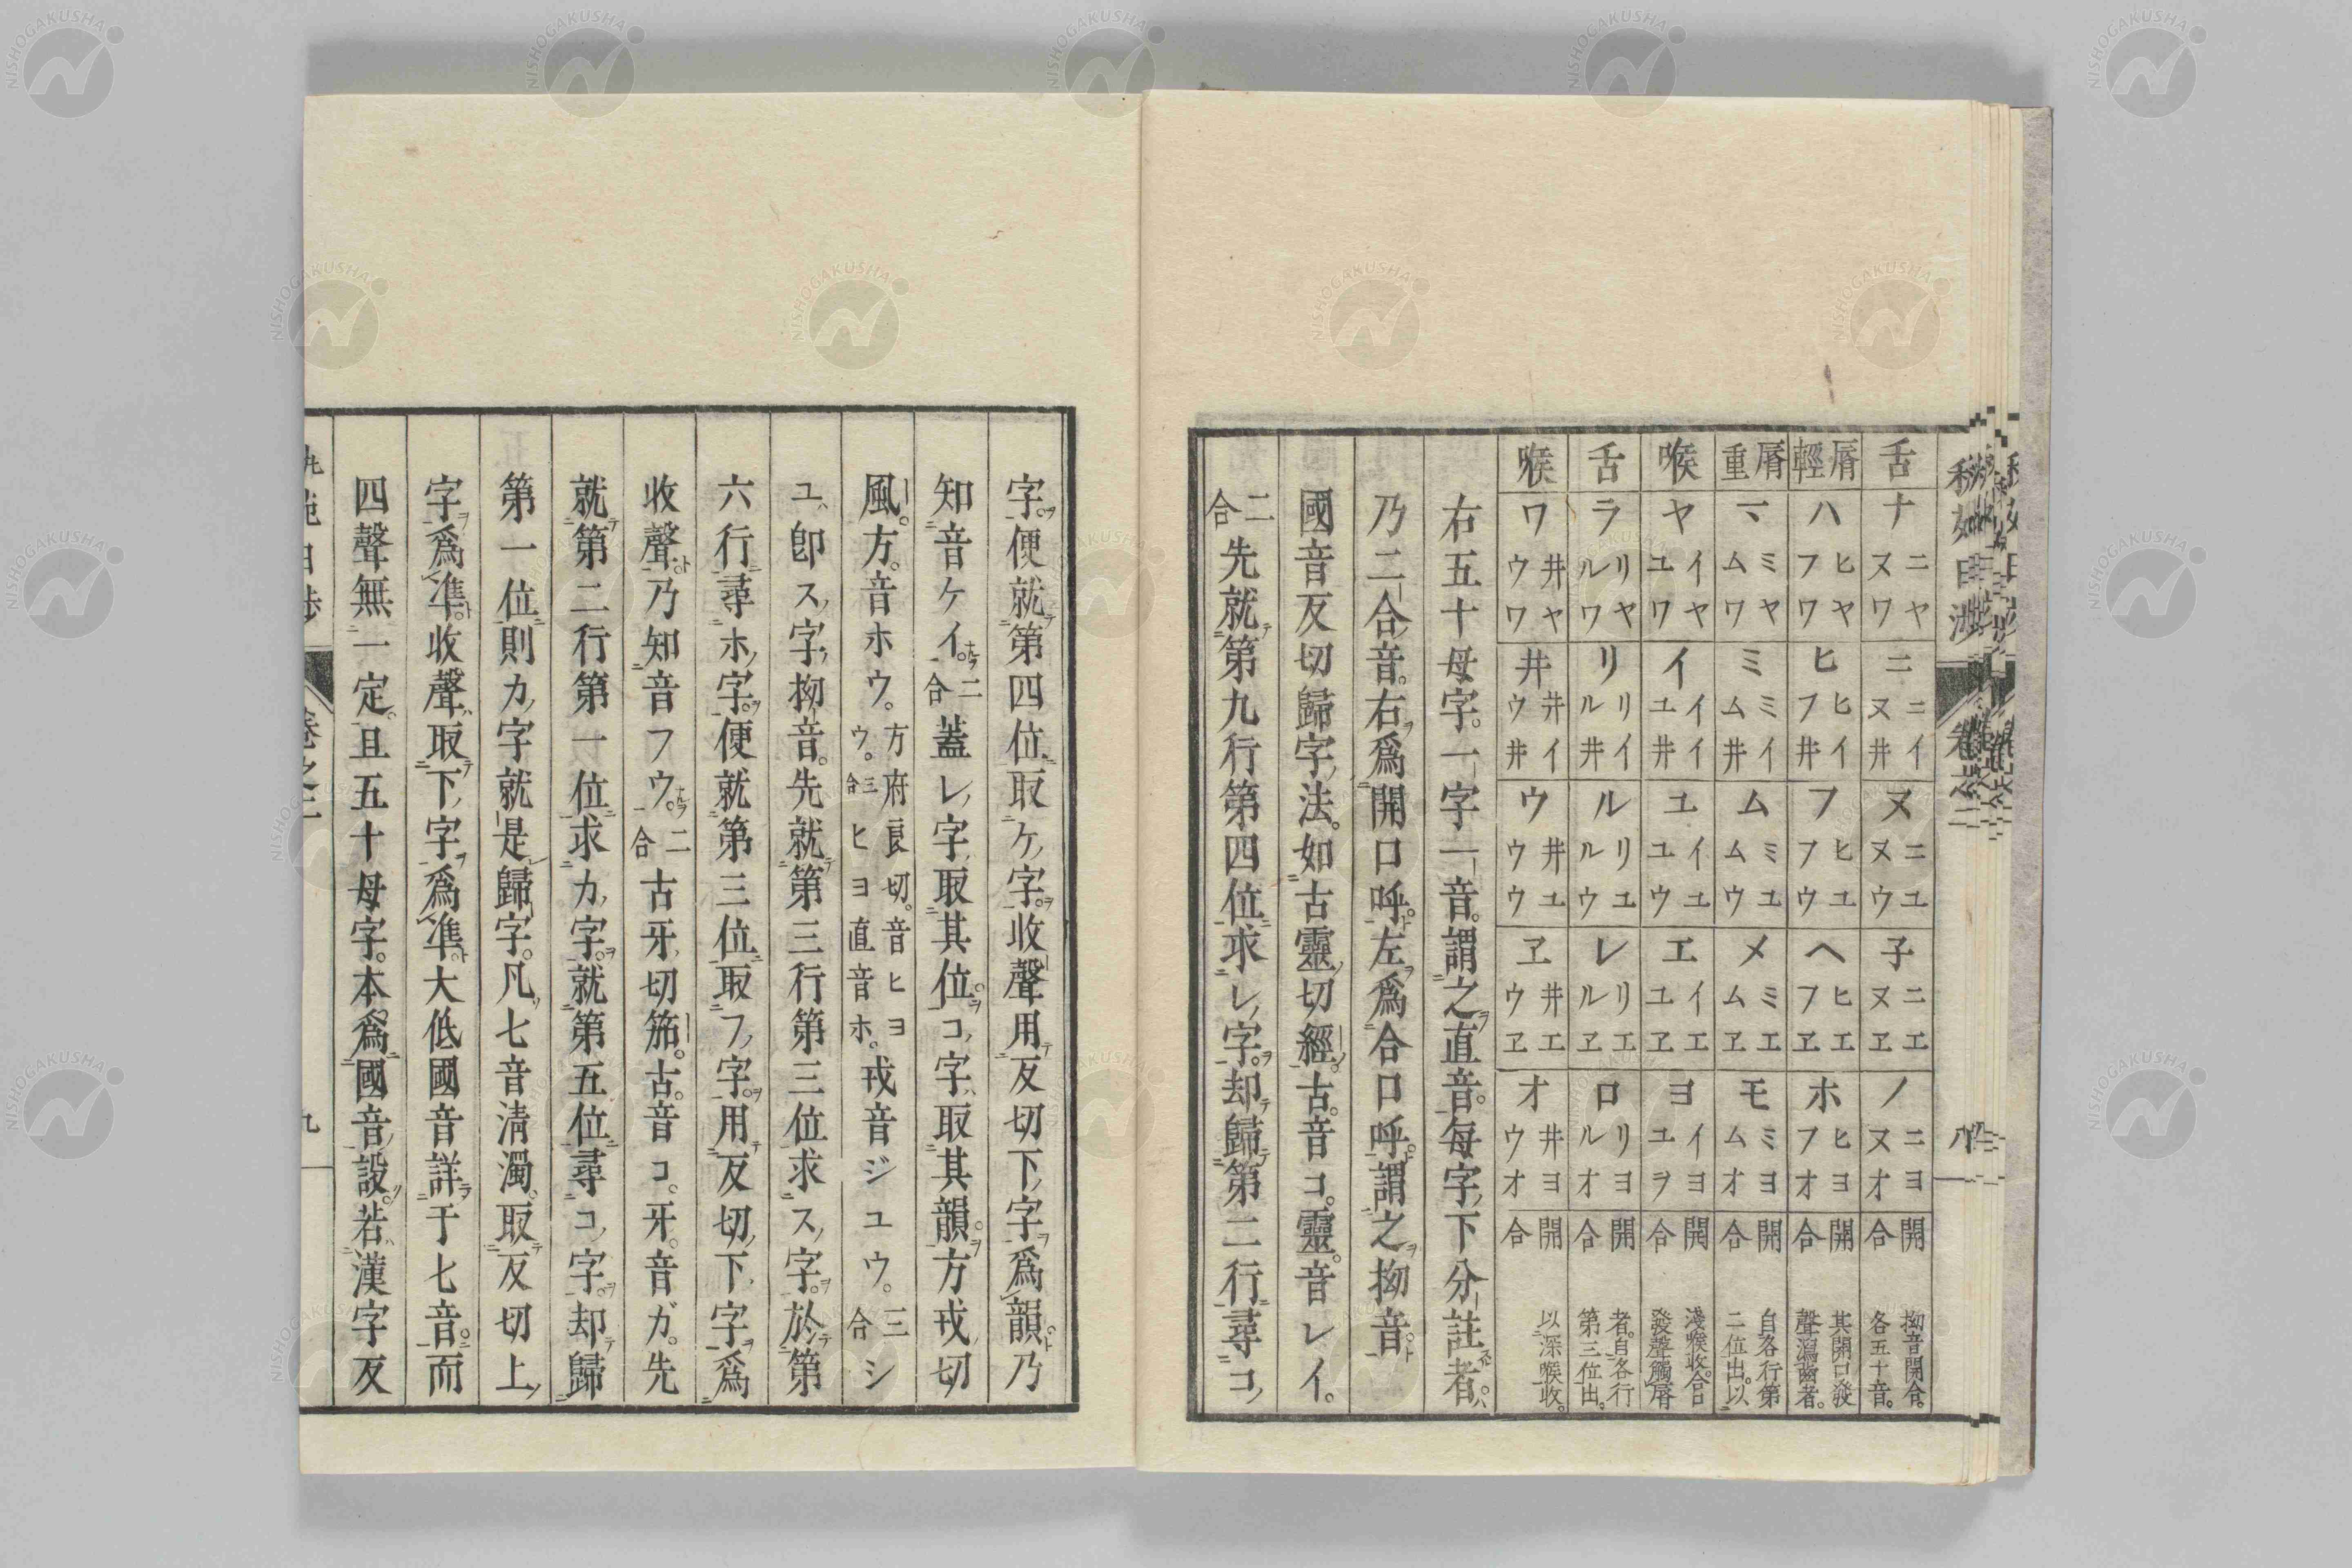 舌 ナ ニヤ ヌワ ニ ニイ ヌ井 ヌ ニユ ヌウ 子 ニエ ヌヱ ノ ニヨ ヌオ 開合 拗音開合。各五十音。
脣輕 ハ ヒヤ フワ ヒ ヒイ フ井 フ ヒユ フウ ヘ ヒエ フヱ ホ ヒヨ フオ 開合 其開口發聲瀉齒者。
脣重 マ ミヤ ムワ ミ ミイ ム井 ム ミユ ムウ メ ミエ ムヱ モ ミヨ ムオ 開合 自各行第二位出。以
喉 ヤ イヤ ユワ イ イイ ユ井 ユ イユ ユウ エ イエ ユヱ ヨ イヨ ユヲ 開合 淺喉收。合口發聲觸脣
舌 ラ リヤ ルワ リ リイ ル井 ル リユ ルウ レ リエ ルヱ ロ リヨ ルオ 開合 者。自各行第三位出。
喉 ワ 井ヤ ウワ 井 井イ ウ井 ウ 井ユ ウウ ヱ 井エ ウヱ オ 井ヨ ウオ 開合 以深喉收。
右五十母字。一字一音。謂之直音。每字下分註者。
乃二合音。右爲開口呼。左爲合口呼。謂之拗音
國音反切歸字法。如古靈切經。古。音コ。靈。音レイ。
二合先就第九行第四位求レ字。却歸第二行尋コ
字。便就第四位取ケ字。收聲用反切下字爲韻。乃
知音ケイ。二合蓋レ字取其位。コ字取其韻。方戎切
風。方。音ホウ。方府良切。音ヒヨウ。三合ヒヨ直音ホ。戎音ジユウ。三合シ
ユ即ス字拗音。先就第三行第三位求ス字。於第
六行尋ホ字。便就第三位取フ字。用反切下字爲
收聲乃知音フウ。二合古牙切笳。古。音コ。牙。音ガ。先
就第二行第一位求カ字。就第五位尋コ字。却歸
第一位則カ字就是歸字。凡七音淸濁。取反切上
字爲準。收聲取下字爲準。大低國音詳于七音。而
四聲無一定。且五十母字。本爲國音設。若漢字反
九